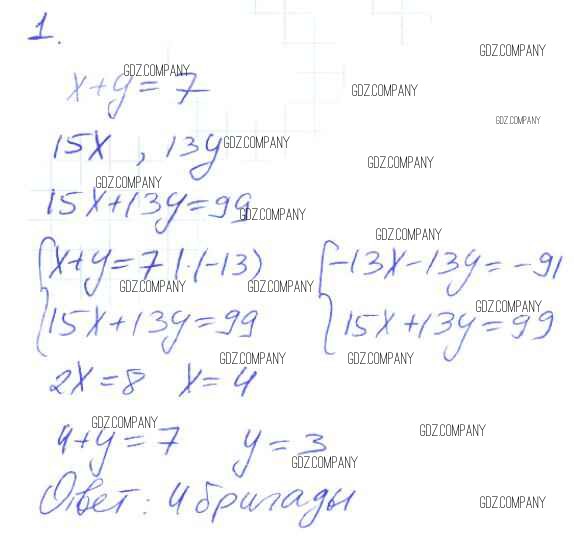 1.
GDZ.COMPANY
GDZ.COMPANY
x+y=7
GDZ.COMPANY
GDZ.COMPANY
15x , 13y
GDZ.COMPANY
GDZ.COMPANY
GDZ.COMPANY
15x+13y=99
GDZ.COMPANY
GDZ.COMPANY
{x+y=7 |·(-13) {-13x-13y=-91
GDZ.COMPANY GDZ.COMPANY
GDZ.COMPANY
15x+13y=99 15x+13y=99
GDZ.COMPANY GDZ.COMPANY
2x=8 x=4
GDZ.COMPANY
GDZ.COMPANY
4+y=7 y=3
GDZ.COMPANY
Ответ: 4 бригады
GDZ.COMPANY